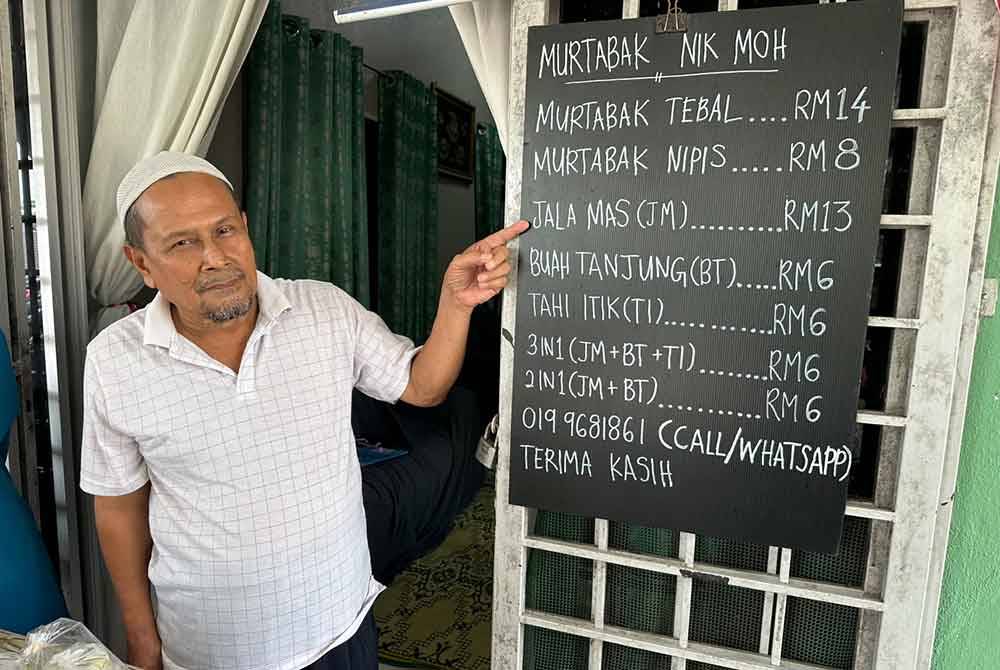 MURTABAK NIK MOH
MURTABAK TEBAL....RM14
MURTABAK NIPIS.....RM8
JALA MAS(JM)..........RM13
BUAH TANJUNG(BT).....RM6
TAHI ITIK(TI)............RM6
3IN1(JM+BT+TI).......RM6
2IN1(JM+BT)............RM6
019 9681861 (CALL/WHATSAPP)
TERIMA KASIH